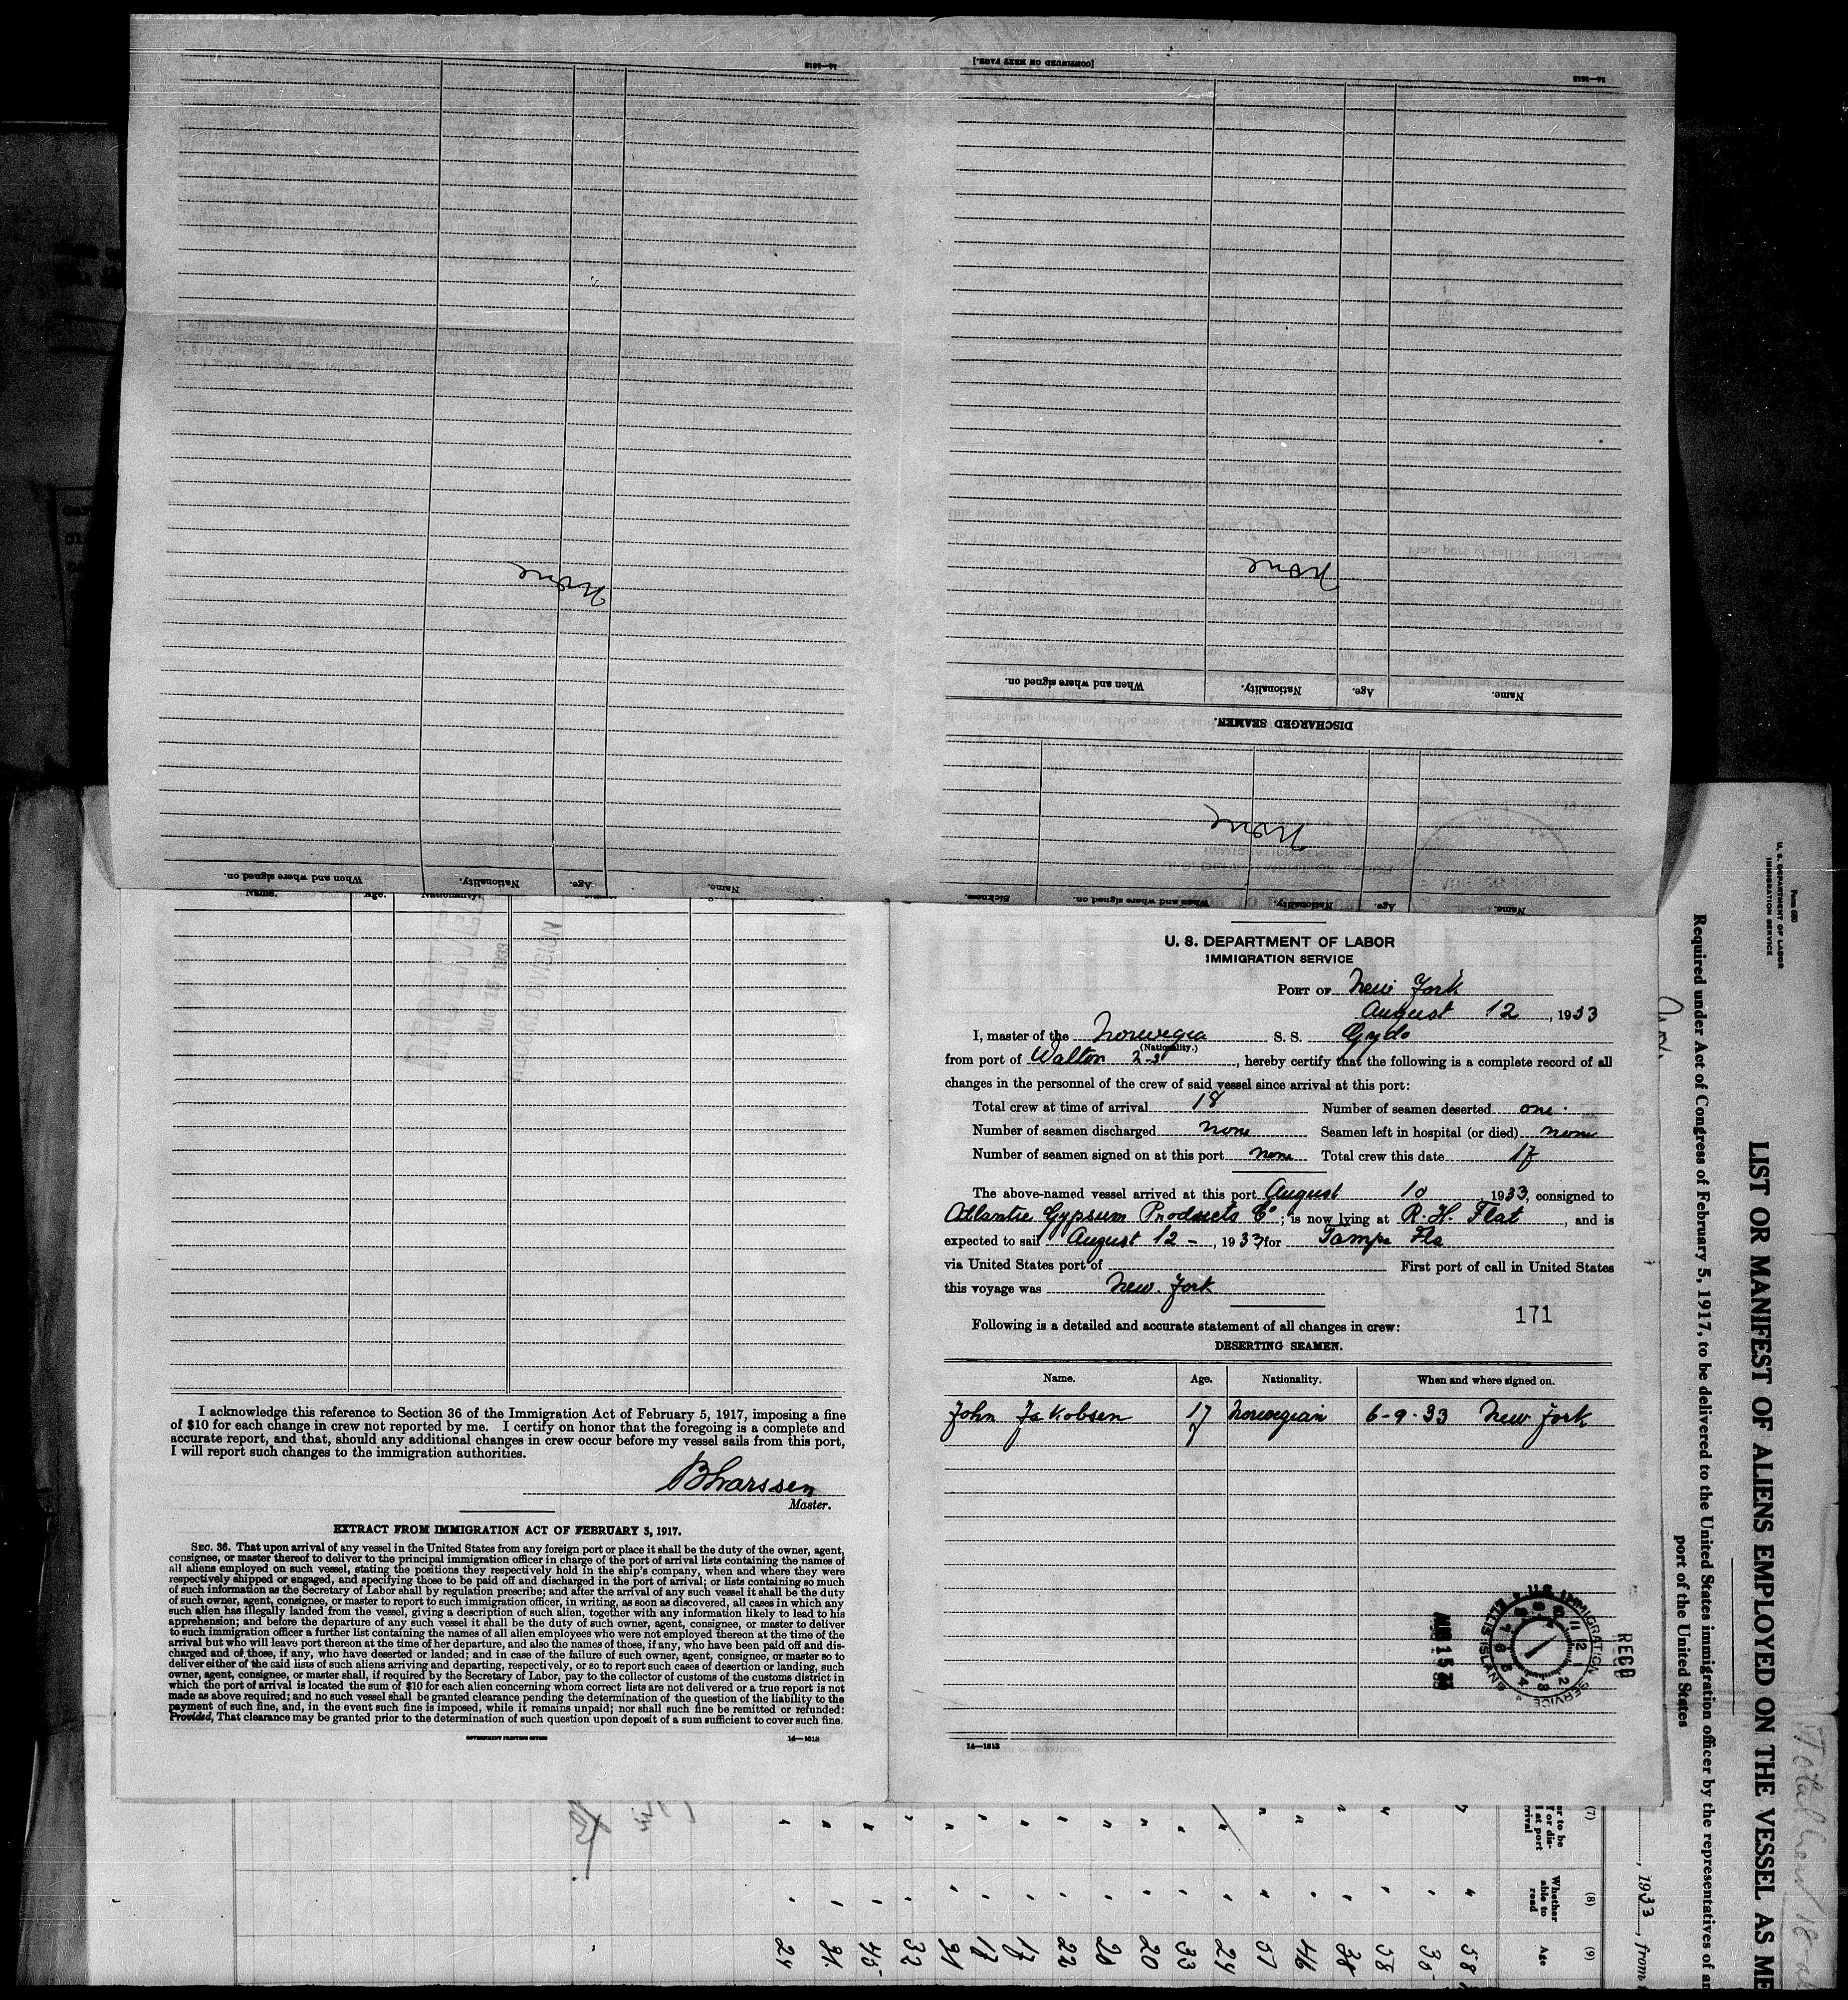 14—1618
[CONTINUED ON NEXT PAGE.]
14—1618
None
None
When and where signed on.
Nationality.
Age.
Name.
DISCHARGED SEAMEN.
None
When and where signed on.
Nationality.
Age.
Name.
Sickness.
When and where signed on.
Nationality.
Age.
Name.
Name.
Age.
Nationality.
AUG 15 1933
RECORD DIVISION
I acknowledge this reference to Section 36 of the Immigration Act of February 5, 1917, imposing a fine
of $10 for each change in crew not reported by me. I certify on honor that the foregoing is a complete and
accurate report, and that, should any additional changes in crew occur before my vessel sails from this port,
I will report such changes to the immigration authorities.
B Larssen
Master.
EXTRACT FROM IMMIGRATION ACT OF FEBRUARY 5, 1917.
SEC. 36. That upon arrival of any vessel in the United States from any foreign port or place it shall be the duty of the owner, agent,
consignee, or master thereof to deliver to the principal immigration officer in charge of the port of arrival lists containing the names of
all aliens employed on such vessel, stating the positions they respectively hold in the ship's company, when and where they were
respectively shipped or engaged, and specifying those to be paid off and discharged in the port of arrival; or lists containing so much
of such information as the Secretary of Labor shall by regulation prescribe; and after the arrival of any such vessel it shall be the duty
of such owner, agent, consignee, or master to report to such immigration officer, in writing, as soon as discovered, all cases in which any
such alien has illegally landed from the vessel, giving a description of such alien, together with any information likely to lead to his
apprehension; and before the departure of any such vessel it shall be the duty of such owner, agent, consignee, or master to deliver
to such immigration officer a further list containing the names of all alien employees who were not employed thereon at the time of the
arrival but who will leave port thereon at the time of her departure, and also the names of those, if any, who have been paid off and dis-
charged and of those, if any, who have deserted or landed; and in case of the failure of such owner, agent, consignee, or master so to
deliver either of the said lists of such aliens arriving and departing, respectively, or so to report such cases of desertion or landing, such
owner, agent, consignee, or master shall, if required by the Secretary of Labor, pay to the collector of customs of the customs district in
which the port of arrival is located the sum of $10 for each alien concerning whom correct lists are not delivered or a true report is not
made as above required; and no such vessel shall be granted clearance pending the determination of the question of the liability to the
payment of such fine, and, in the event such fine is imposed, while it remains unpaid; nor shall such fine be remitted or refunded:
Provided, That clearance may be granted prior to the determination of such question upon deposit of a sum sufficient to cover such fine.
GOVERNMENT PRINTING OFFICE
14—1618
U. S. DEPARTMENT OF LABOR
IMMIGRATION SERVICE
PORT OF New York
August 12, 1933
I, master of the Norwegia S. S. Gydo
(Nationality.)
from port of Walton, hereby certify that the following is a complete record of all
changes in the personnel of the crew of said vessel since arrival at this port:
Total crew at time of arrival 18 Number of seamen deserted one.
Number of seamen discharged none Seamen left in hospital (or died) none
Number of seamen signed on at this port none Total crew this date 17
The above-named vessel arrived at this port August 10 1933, consigned to
Atlantic Gypsum Products Co; is now lying at R. H. Flat, and is
expected to sail August 12 -, 1933, for Tampa Fla
via United States port of First port of call in United States
this voyage was New York
171
Following is a detailed and accurate statement of all changes in crew:
DESERTING SEAMEN.
Name. Age. Nationality. When and where signed on.
John Jakobsen 17 Norwegian 6-9-33 New York
RECD
U.S. IMMIGRATION SERVICE
ELLIS ISLAND
AUG 15 33
14—1618
Form 680
U. S. DEPARTMENT OF LABOR
IMMIGRATION SERVICE
LIST OR MANIFEST OF ALIENS EMPLOYED ON THE VESSEL AS ME
Required under Act of Congress of February 5, 1917, to be delivered to the United States immigration officer by the representatives of an
port of the United States
, 1933, from
(7) (8) (9)
Whether able to read
Age
58
35
58
38
46
57
24
33
20
20
22
17
17
21
32
45
31
24